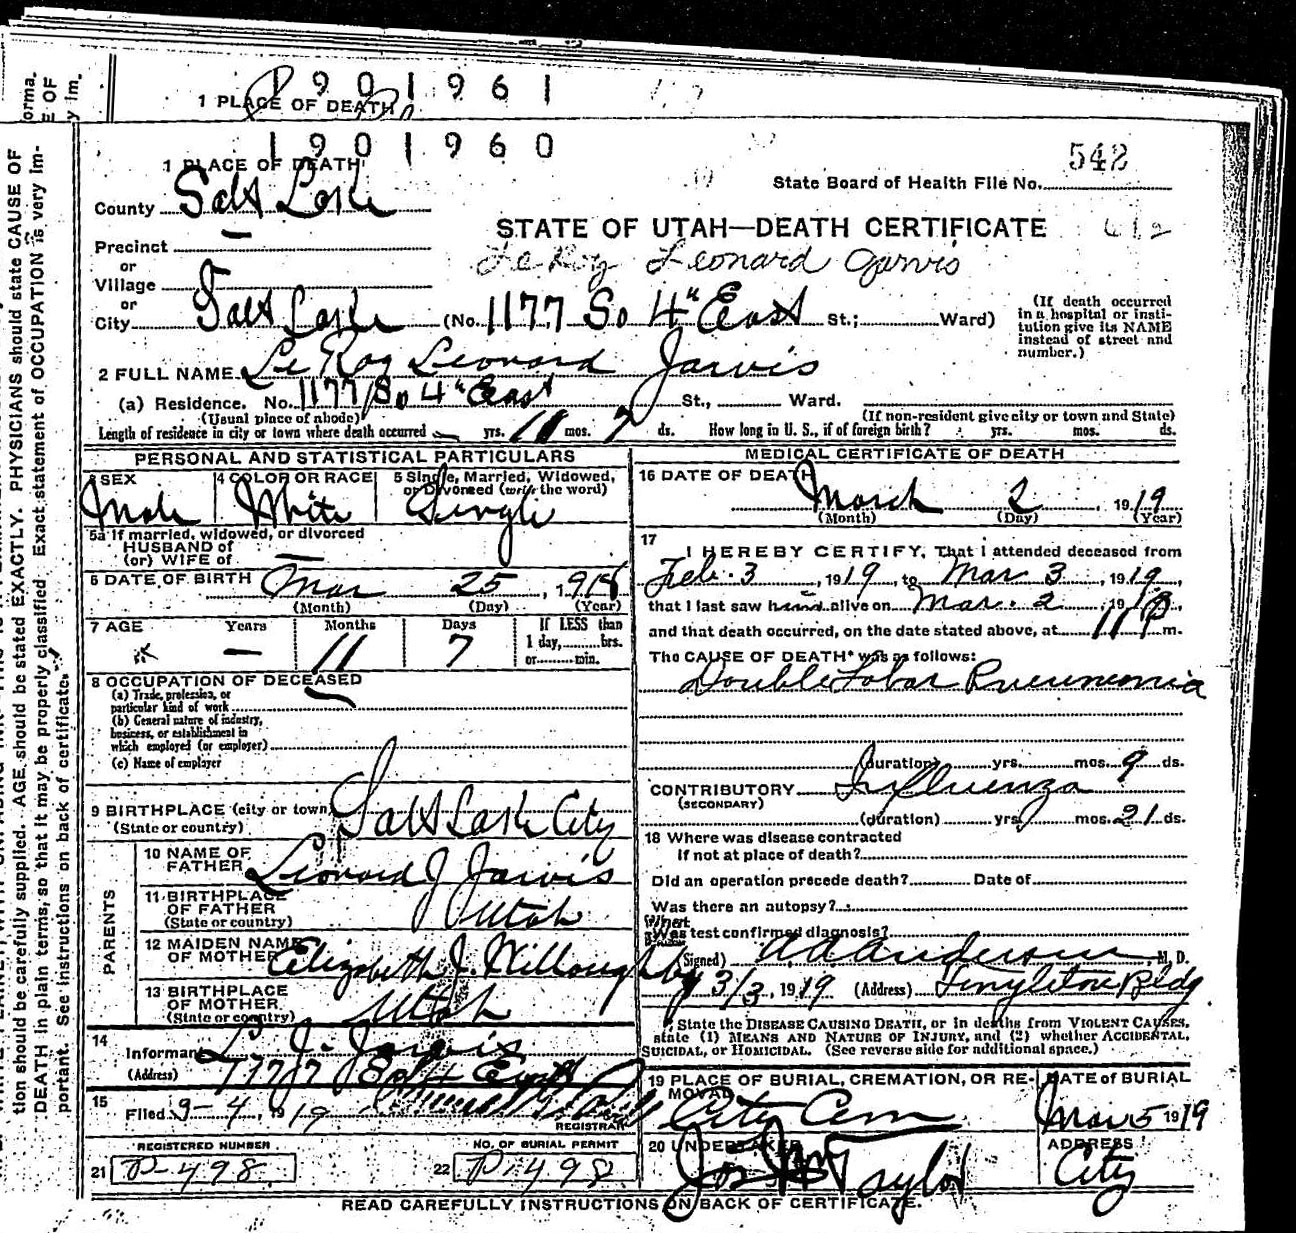 1901961
1 PLACE OF DEATH
1901960
1 PLACE OF DEATH
542
State Board of Health File No.
County Salt Lake
STATE OF UTAH—DEATH CERTIFICATE
Precinct —
Le Roy Leonard Jarvis
or
Village
or
City Salt Lake (No. 1177 So 4" East St.; Ward)
(If death occurred in a hospital or institution give its NAME instead of street and number.)
2 FULL NAME Le Roy Leonard Jarvis
(a) Residence. No. 1177 So 4" East St., Ward.
(Usual place of abode) (If non-resident give city or town and State)
Length of residence in city or town where death occurred — yrs. 11 mos. 7 ds. How long in U. S., if of foreign birth? yrs. mos. ds.
PERSONAL AND STATISTICAL PARTICULARS
3 SEX 4 COLOR OR RACE 5 Single, Married, Widowed, or Divorced (write the word)
Male White Single
5a If married, widowed, or divorced
HUSBAND of
(or) WIFE of —
6 DATE OF BIRTH Mar 25, 1918
(Month) (Day) (Year)
7 AGE Years Months Days If LESS than
1 day, hrs.
or min.
— 11 7
8 OCCUPATION OF DECEASED
(a) Trade, profession, or
particular kind of work
(b) General nature of industry,
business, or establishment in
which employed (or employer)
(c) Name of employer
9 BIRTHPLACE (city or town) Salt Lake City
(State or country)
PARENTS
10 NAME OF
FATHER Leonard J Jarvis
11 BIRTHPLACE
OF FATHER
(State or country) Utah
12 MAIDEN NAME
OF MOTHER Elizabeth J. Willoughby
13 BIRTHPLACE
OF MOTHER
(State or country) Utah
14
Informant L. J. Jarvis
(Address) 1177 So 4 East
15
Filed 3-4, 1919
REGISTRAR
REGISTERED NUMBER NO. OF BURIAL PERMIT
21 P-498 22 P-498
MEDICAL CERTIFICATE OF DEATH
16 DATE OF DEATH
March 2, 1919
(Month) (Day) (Year)
17
I HEREBY CERTIFY, That I attended deceased from
Feb. 3, 1919, to Mar 3, 1919,
that I last saw him alive on Mar. 2, 1919,
and that death occurred, on the date stated above, at 11 P m.
The CAUSE OF DEATH* was as follows:
Double Lobar Pneumonia
(duration) yrs. mos. 9 ds.
CONTRIBUTORY Influenza
(SECONDARY)
(duration) yrs. mos. 21 ds.
18 Where was disease contracted
If not at place of death?
Did an operation precede death? Date of
Was there an autopsy?
What test confirmed diagnosis?
(Signed) A A Anderson, M. D.
3/3, 1919 (Address) Templeton Bldg.
* State the DISEASE CAUSING DEATH, or in deaths from VIOLENT CAUSES,
state (1) MEANS AND NATURE OF INJURY, and (2) whether ACCIDENTAL,
SUICIDAL, or HOMICIDAL. (See reverse side for additional space.)
19 PLACE OF BURIAL, CREMATION, OR REMOVAL DATE of BURIAL
City Cem Mar 5 1919
20 UNDERTAKER ADDRESS
Jos Wm Taylor City
READ CAREFULLY INSTRUCTIONS ON BACK OF CERTIFICATE.
tion should be carefully supplied. AGE should be stated EXACTLY. PHYSICIANS should state CAUSE OF
DEATH in plain terms, so that it may be properly classified. Exact statement of OCCUPATION is very im-
portant. See instructions on back of certificate.